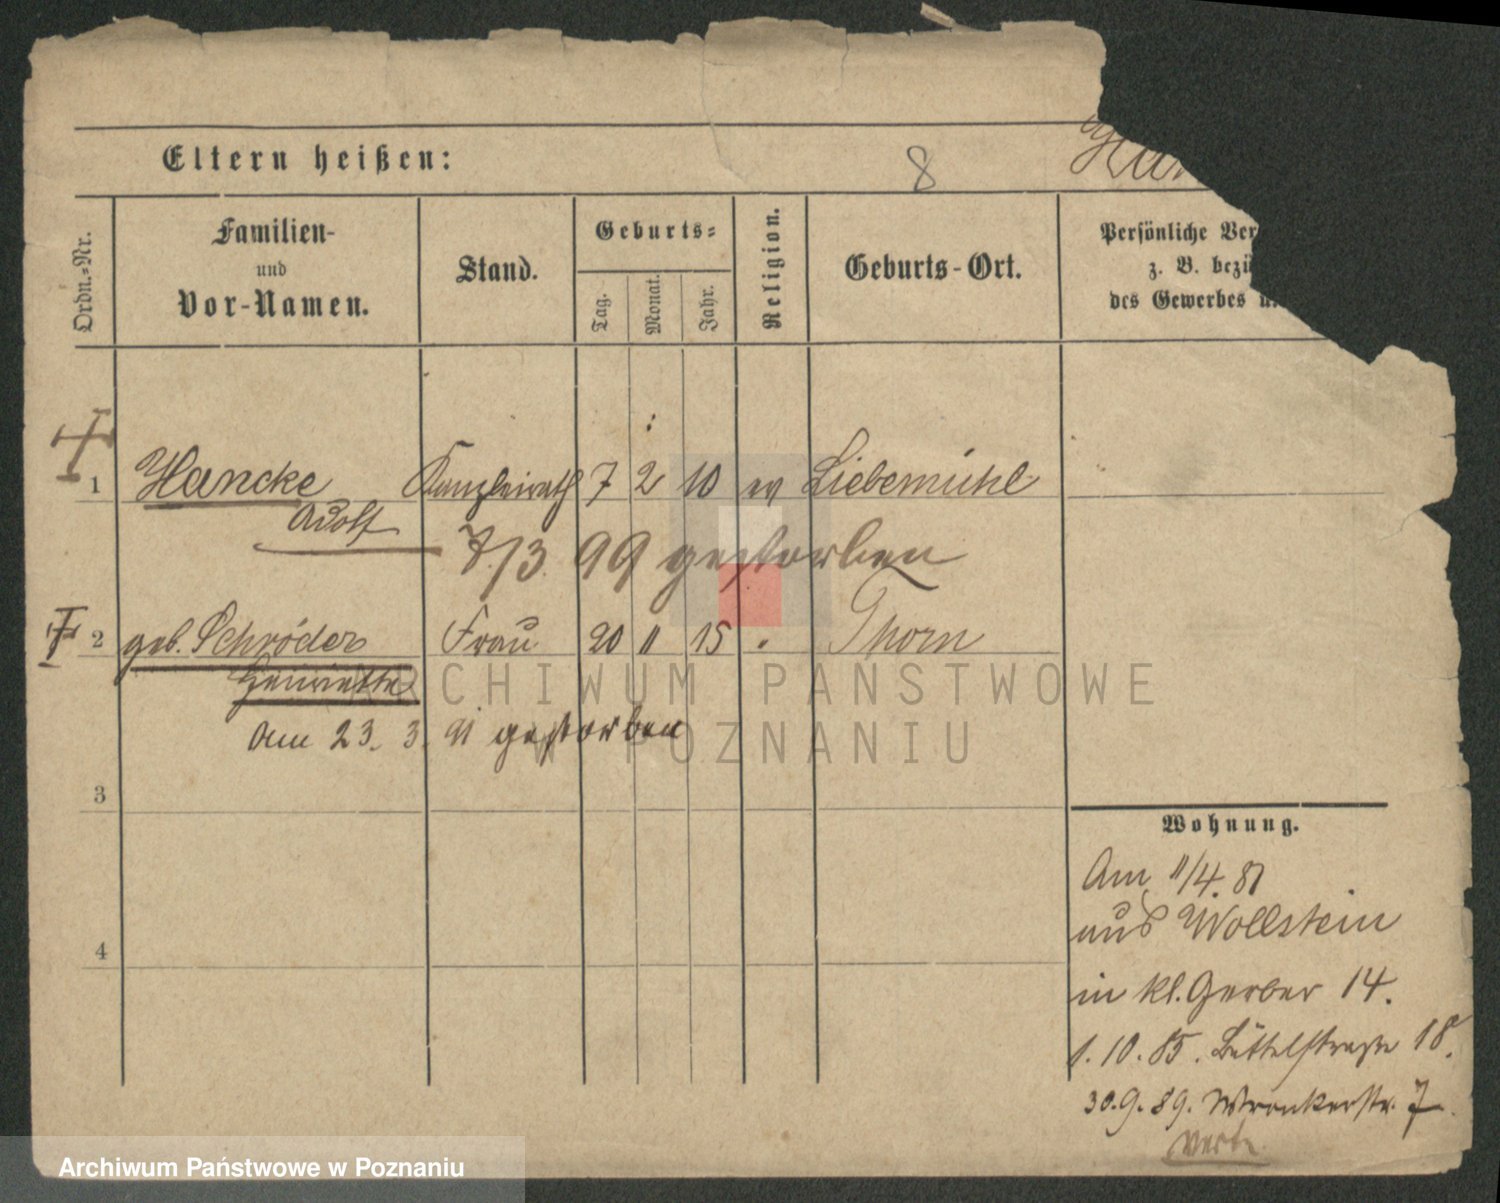 Eltern heißen:
8
Han
Ordn.-Nr.
Familien-
und
Vor-Namen.
Stand.
Geburts-
Tag.
Monat.
Jahr.
Religion.
Geburts-Ort.
Persönliche Ver
z. B. bezü
des Gewerbes u.
1 Hancke Kanzleirath 7 2 10 ev Liebemühl
Adolf
7./3. 99 gestorben
2 geb. Schröder Frau 20 11 15 " Thorn
Henriette
Am 23. 3. 91 gestorben
3
4
Wohnung.
Am 11/4. 81
aus Wollstein
in kl. Gerber 14.
1. 10. 85. Büttelstraße 18.
30. 9. 89. Wronkerstr. 7.
verte
ARCHIWUM PAŃSTWOWE
W POZNANIU
Archiwum Państwowe w Poznaniu